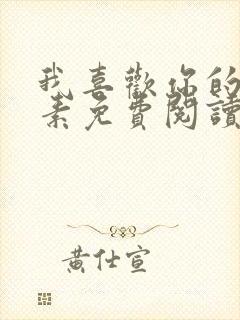 我喜歡你的
素免費閱讀
黃仕宣